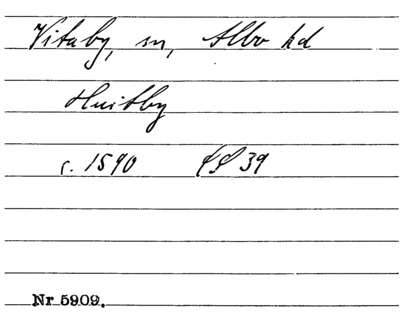 Vitaby, sn, Albo hd
Huitby
c. 1590 LL 39
Nr 5909.